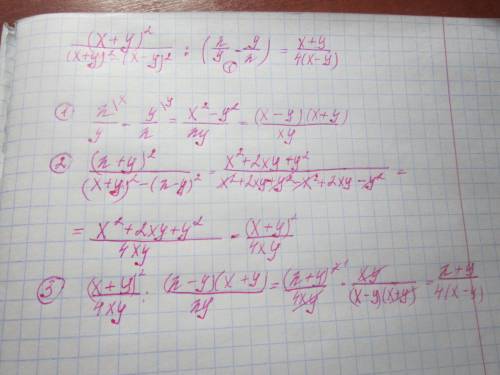 (x+y)²/((x+y)² - (x-y)²) : (x/y - y/x) = (x+y)/(4(x-y))
① x/y - y/x = (x² - y²)/(xy) = ((x-y)(x+y))/(xy)
② (x+y)²/((x+y)² - (x-y)²) = (x²+2xy+y²)/(x²+2xy+y²-x²+2xy-y²) =
= (x²+2xy+y²)/(4xy) = (x+y)²/(4xy)
③ (x+y)²/(4xy) : ((x-y)(x+y))/(xy) = (x+y)²/(4xy) · xy/((x-y)(x+y)) = (x+y)/(4(x-y))